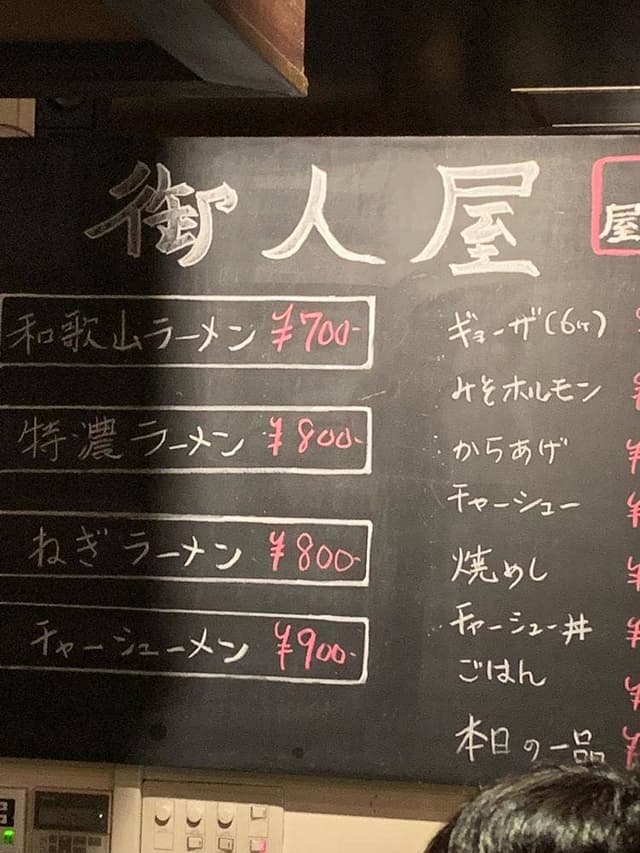 御人屋
屋
和歌山ラーメン ¥700-
特濃ラーメン ¥800-
ねぎラーメン ¥800-
チャーシューメン ¥900-
ギョーザ(6ヶ)
みそホルモン
からあげ
チャーシュー
焼めし
チャーシュー丼
ごはん
本日の一品